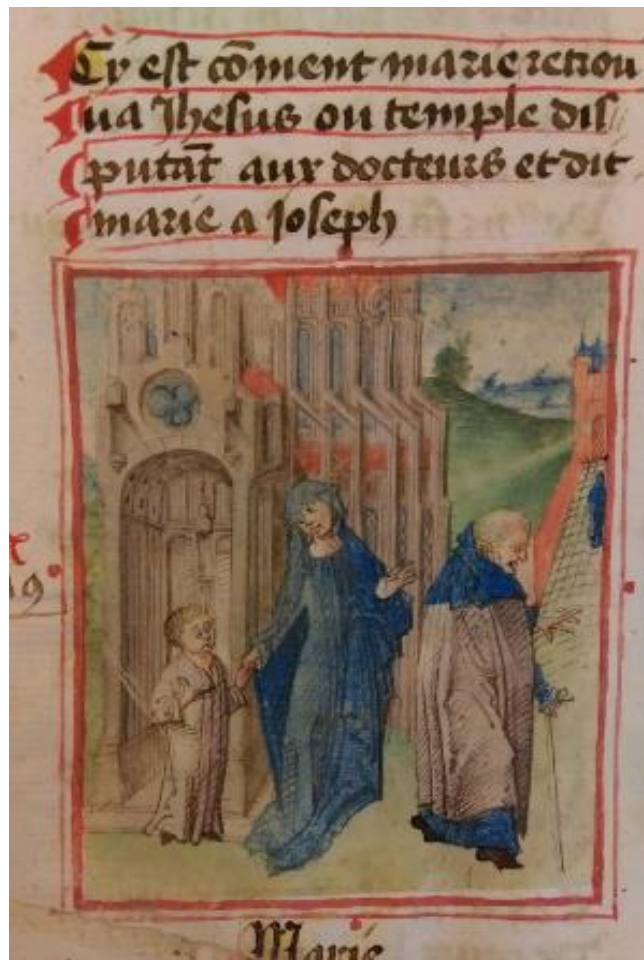 Cy est cõment marie retrou
ua Jhesus ou temple dis
putãt aux docteurs et dit
marie a Joseph
Marie